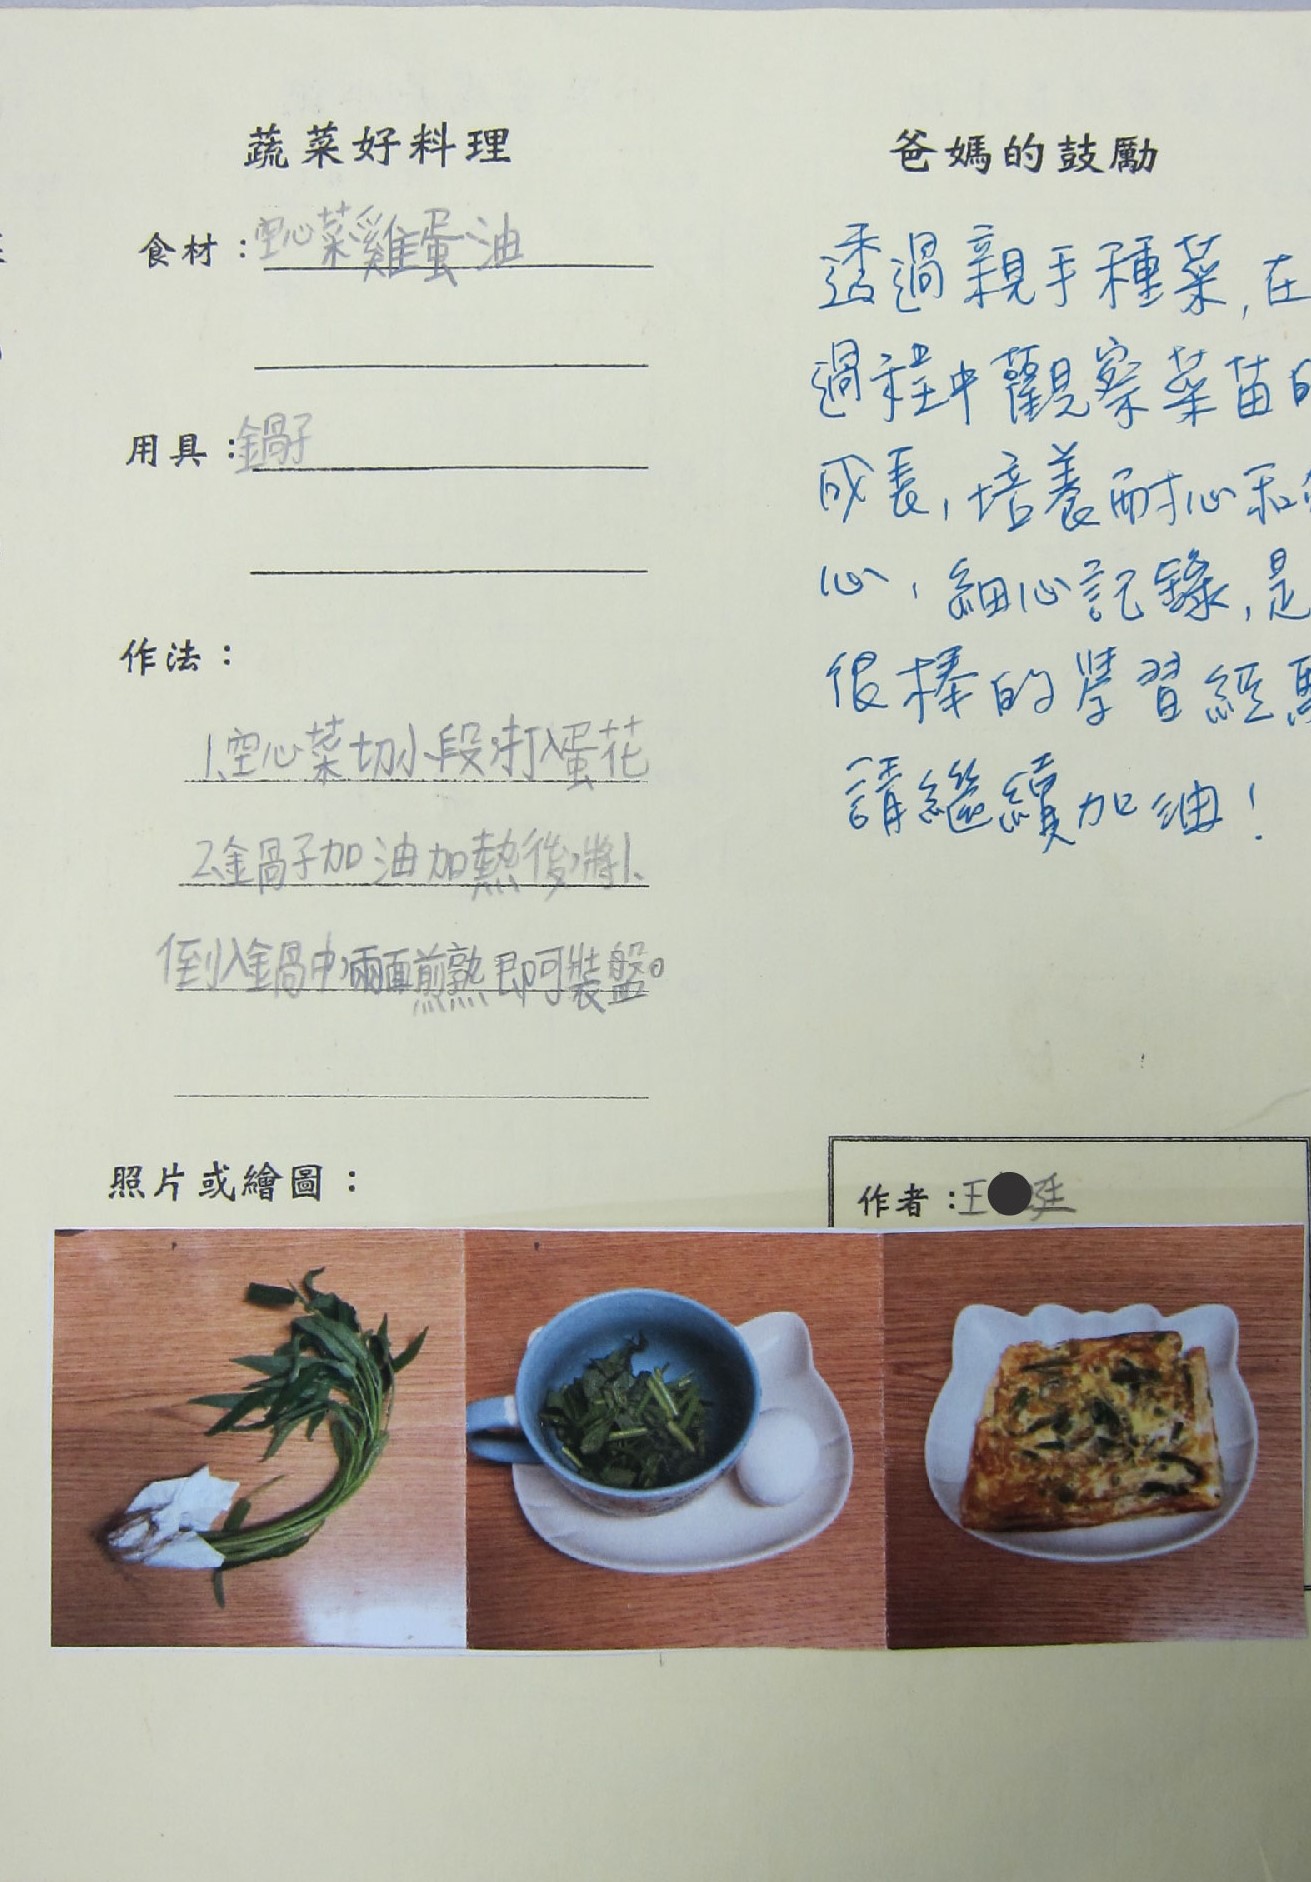 蔬菜好料理
食材：空心菜雞蛋油
用具：鍋子
作法：
1、空心菜切小段，打入蛋花
2、鍋子加油加熱後，將1、
倒入鍋中，兩面煎熟即可裝盤。
照片或繪圖：
爸媽的鼓勵
透過親手種菜,在
過程中觀察菜苗的
成長,培養耐心和
心,細心記錄,是
很棒的學習經驗
請繼續加油!
作者：王 廷